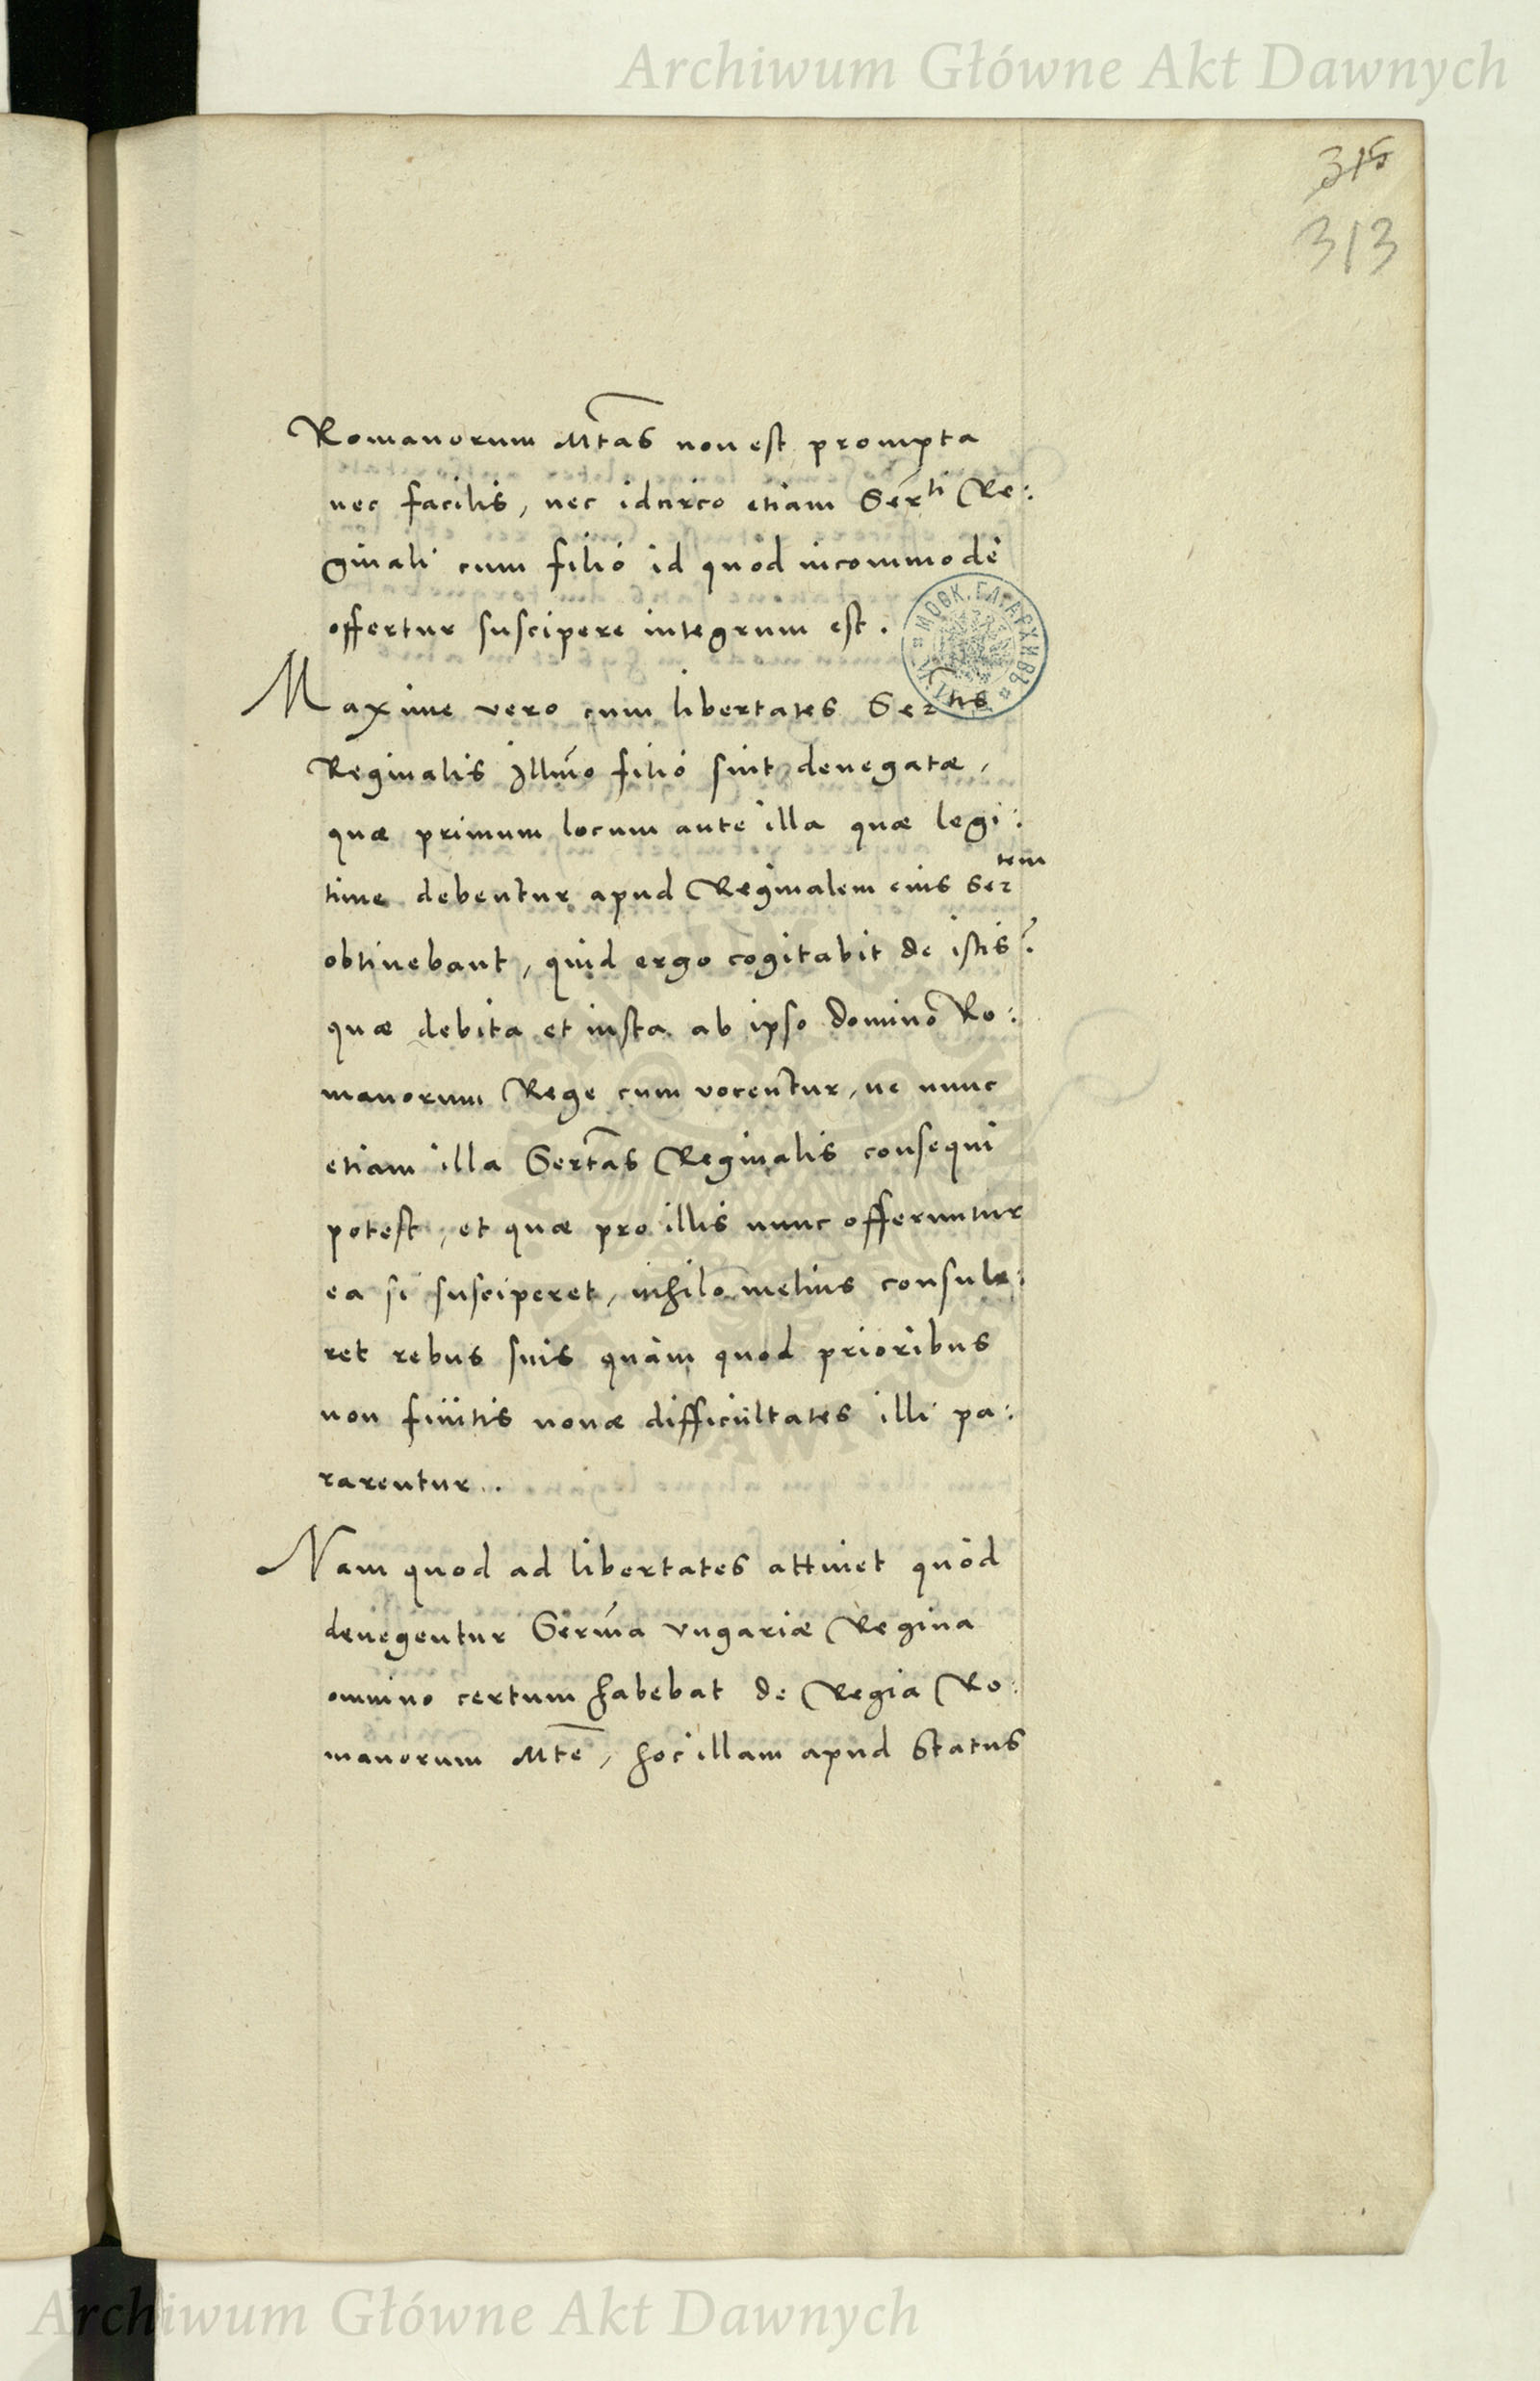 Archiwum Główne Akt Dawnych
315
313
Romanorum Mtas non est prompta
nec facilis, nec idcirco etiam Serti Re:
ginali cum filio id quod incommode
offertur suscipere integrum est.
МОСК. ГЛ. АРХИВЪ
Maxime vero cum libertates Sertis
Reginalis Illmo filio sint denegatæ,
quæ primum locum ante illa quæ legi:
time debentur apud Reginalem eius Sertem
obtinebant, quid ergo cogitabit de istis?
quæ debita et iusta ab ipso domino Ro:
manorum Rege cum vocentur, ne nunc
etiam illa Sertas Reginalis consequi
potest, et quæ pro illis nunc offeruntur
ea si susciperet, nihilo melius consule:
ret rebus suis quàm quod prioribus
non finitis novæ difficultates illi pa:
rarentur..
Nam quod ad libertates attinet quòd
denegentur Serma Vngariæ Regina
omnino certum habebat de Regia Ro:
manorum Mte, hoc illam apud Status
Archiwum Główne Akt Dawnych